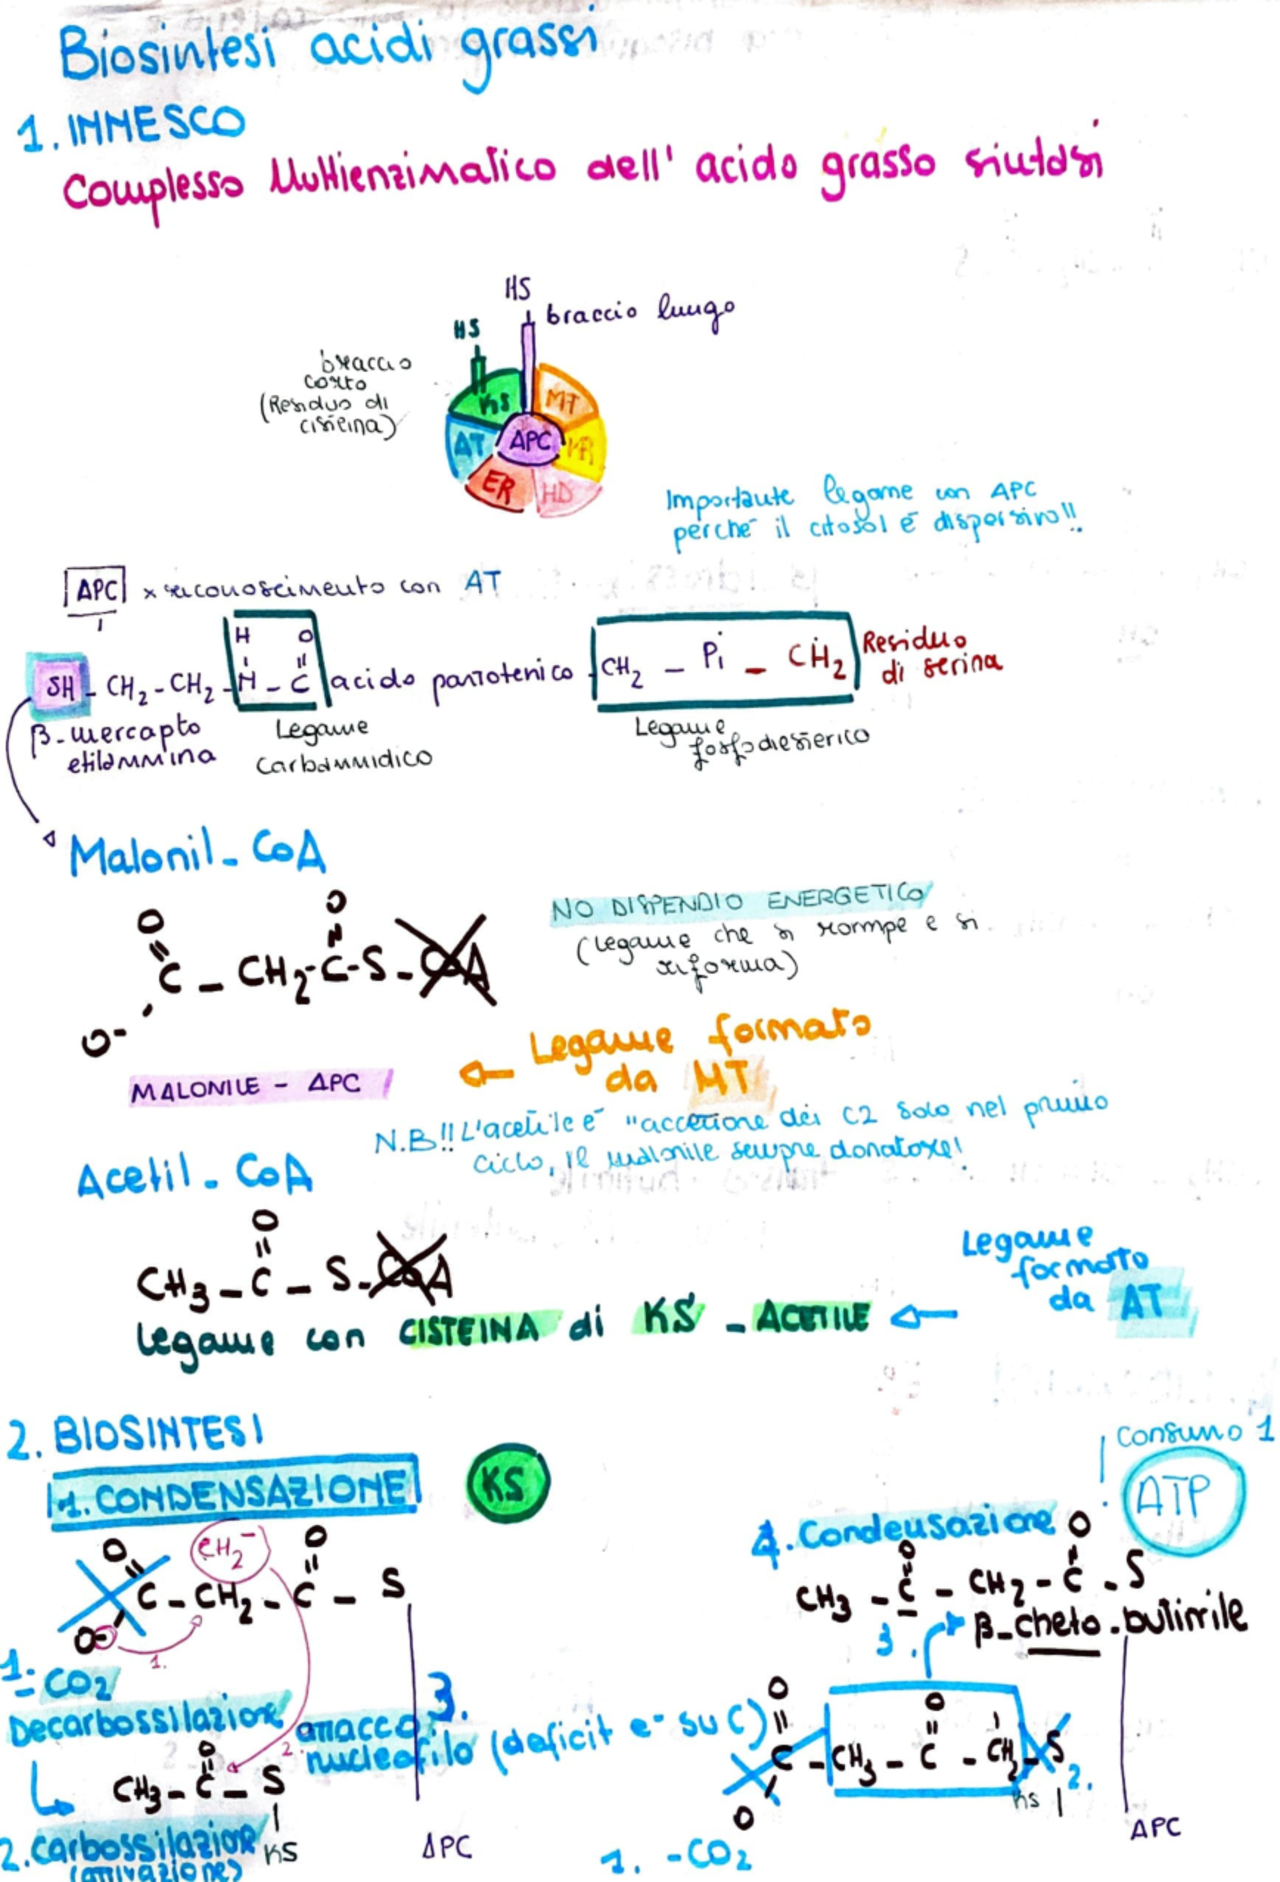 Biosintesi acidi grassi
1. INNESCO
Complesso Multienzimatico dell' acido grasso sintasi
HS
braccio lungo
HS
braccio
corto
(Residuo di
cisteina)
KS
MT
AT
APC
KR
ER
HD
Importante legame con APC
perché il citosol è dispersivo!!
APC x riconoscimento con AT
H O
SH - CH2 - CH2 - N - C acido pantotenico - CH2 - Pi - CH2 Residuo
di serina
β-mercapto
etilammina
Legame
carbammidico
Legame
fosfodiesterico
Malonil - CoA
O O
C - CH2 - C - S - CoA
O-
NO DISPENDIO ENERGETICO
(legame che si rompe e si
riforma)
Legame formato
da MT
MALONILE - APC
N.B!! L'acetile è "accettore dei C2 solo nel primo
ciclo, il malonile sempre donatore!
Acetil - CoA
O
CH3 - C - S - CoA
Legame
formato
da AT
legame con CISTEINA di KS - ACETILE
2. BIOSINTESI
1. CONDENSAZIONE
KS
O CH2- O
C - CH2 - C - S
O-
1.
1- CO2
Decarbossilazione
2.
3.
attacco
nucleofilo (deficit e- su C)
O
CH3 - C - S
KS
2. Carbossilazione
(attivazione)
APC
Consumo 1
ATP
4. Condensazione
O O
CH3 - C - CH2 - C - S
β-cheto-butirrile
3.
O O
C - CH3 - C - CH2 - S
O
KS
2.
APC
1. - CO2